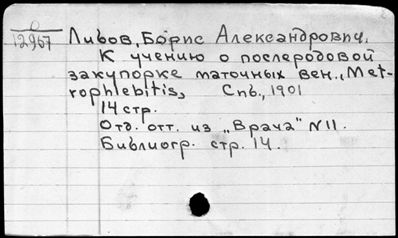 0
12967
Львов, Борис Александрович.
К учению о послеродовой
закупорке маточных вен. (Met-
rophlebitis,    Спб., 1901
14 стр.
Отд. отт. из „Врача" N11.
Библиогр. стр. 14.